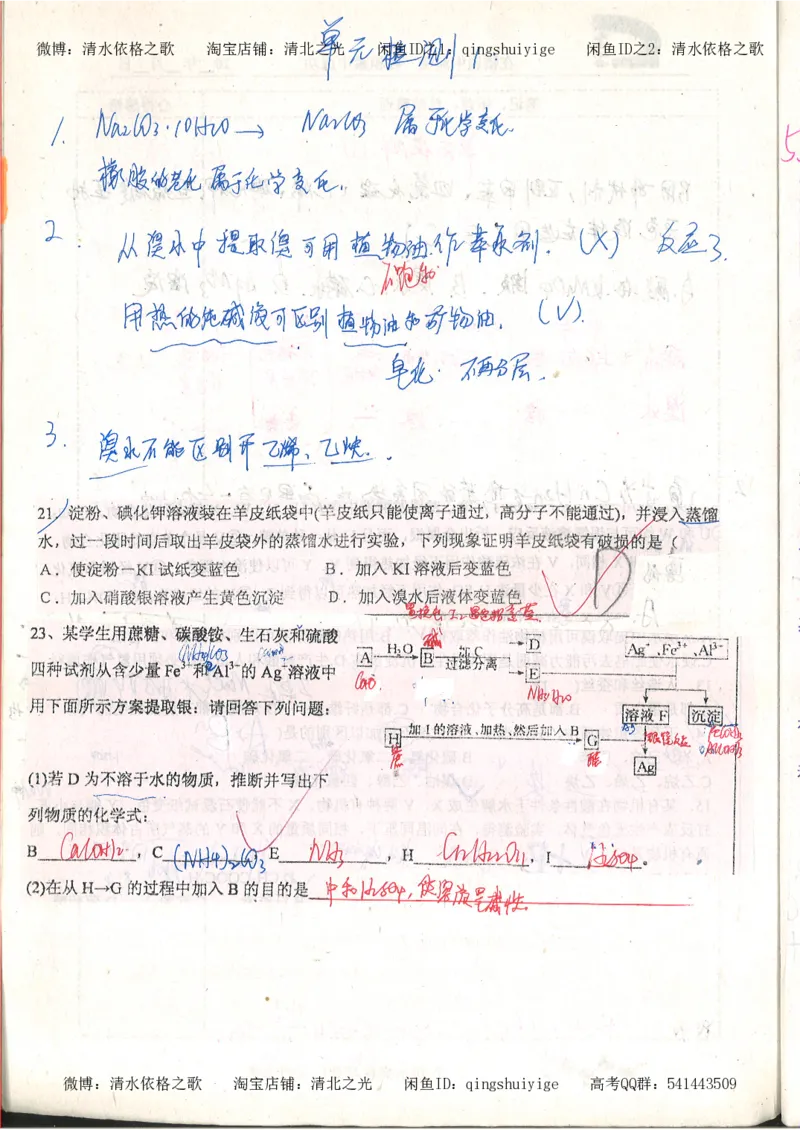 微博：清水依格之歌 淘宝店铺：清北之光 闲鱼ID之1：qingshuiyige 闲鱼ID之2：清水依格之歌
单元检测1.
1. Na2CO3·10H2O → Na2CO3 属于化学变化.
橡胶的老化属于化学变化.
2. 从溴水中提取溴可用植物油作萃取剂. (X) 反应了.
不饱和
用热的纯碱液可区别植物油和矿物油. (V).
皂化 不再分层.
3. 溴水不能区别开乙烯、乙炔.
21. 淀粉、碘化钾溶液装在羊皮纸袋中(羊皮纸只能使离子通过，高分子不能通过)，并浸入蒸馏
水，过一段时间后取出羊皮袋外的蒸馏水进行实验，下列现象证明羊皮纸袋有破损的是（ D
A．使淀粉—KI试纸变蓝色 B．加入KI溶液后变蓝色
C．加入硝酸银溶液产生黄色沉淀 D．加入溴水后液体变蓝色
23、某学生用蔗糖、碳酸铵、生石灰和硫酸
(NH4)2CO3
四种试剂从含少量Fe3+和Al3+的Ag+溶液中
用下面所示方案提取银：请回答下列问题：
A H2O B 加C 过滤分离 D E
碱
CaO.
NH3·H2O
Ag+、Fe3+、Al3+
溶液F 沉淀
银镜反应
H 加I的溶液、加热、然后加入B G
蔗
醛
Ag
(1)若D为不溶于水的物质，推断并写出下
列物质的化学式：
B Ca(OH)2 ，C (NH4)2CO3 E NH3 ，H C12H22O11 . I H2SO4 .
(2)在从H→G的过程中加入B的目的是 中和H2SO4, 使溶液呈碱性.
微博：清水依格之歌 淘宝店铺：清北之光 闲鱼ID：qingshuiyige 高考QQ群：541443509